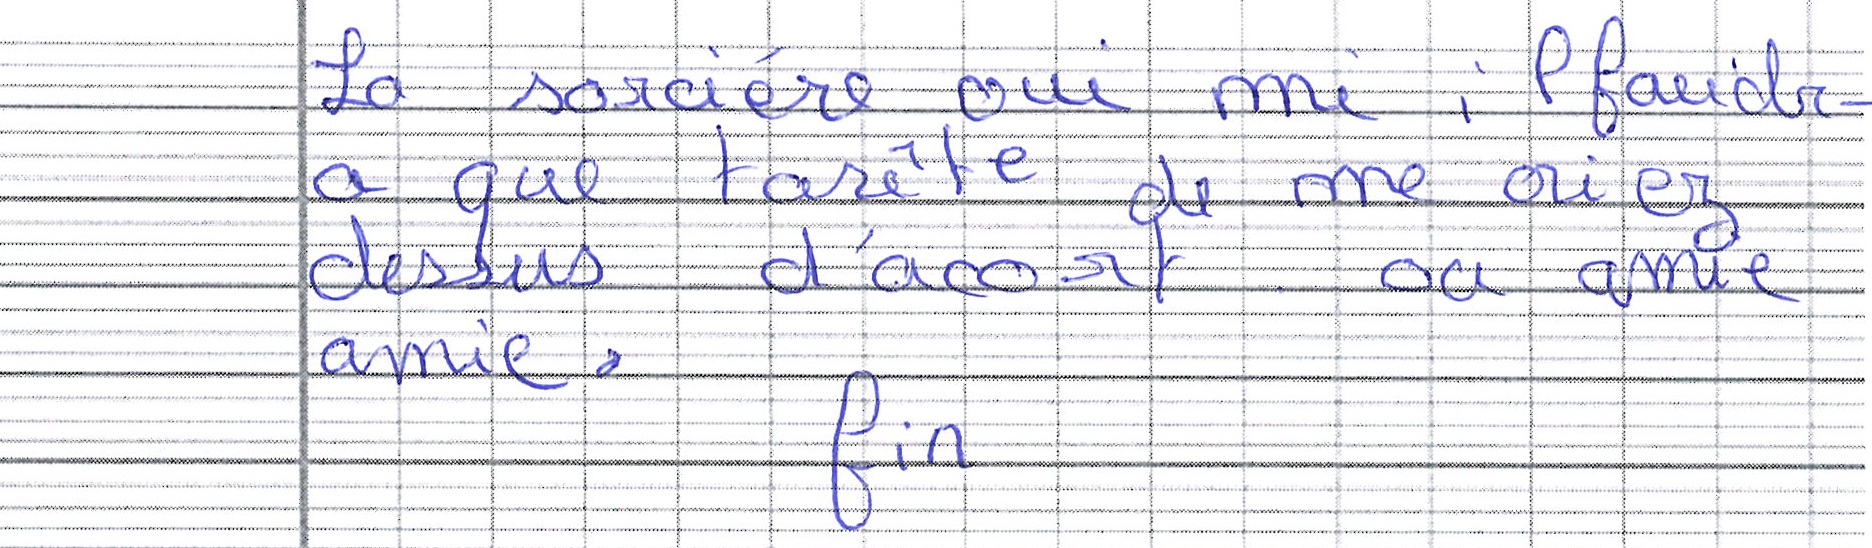 La sorciére oui mi i l faudr-
a que tarête de me crier
dessus d'acort oui amie
amie.
fin